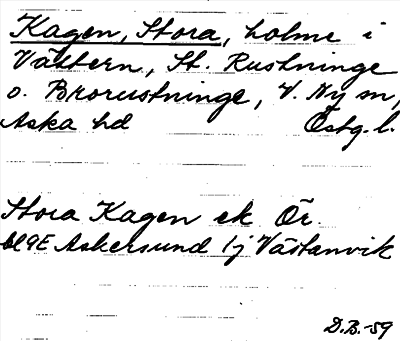 Kagen, Stora, holme i
Vättern, St. Rustninge
o. Brorustninge, V. Ny sn,
Aska hd Östg. l.
Stora Kagen ek. Ör.
bl 9E Askersund 1j Västanvik
D.B.-59